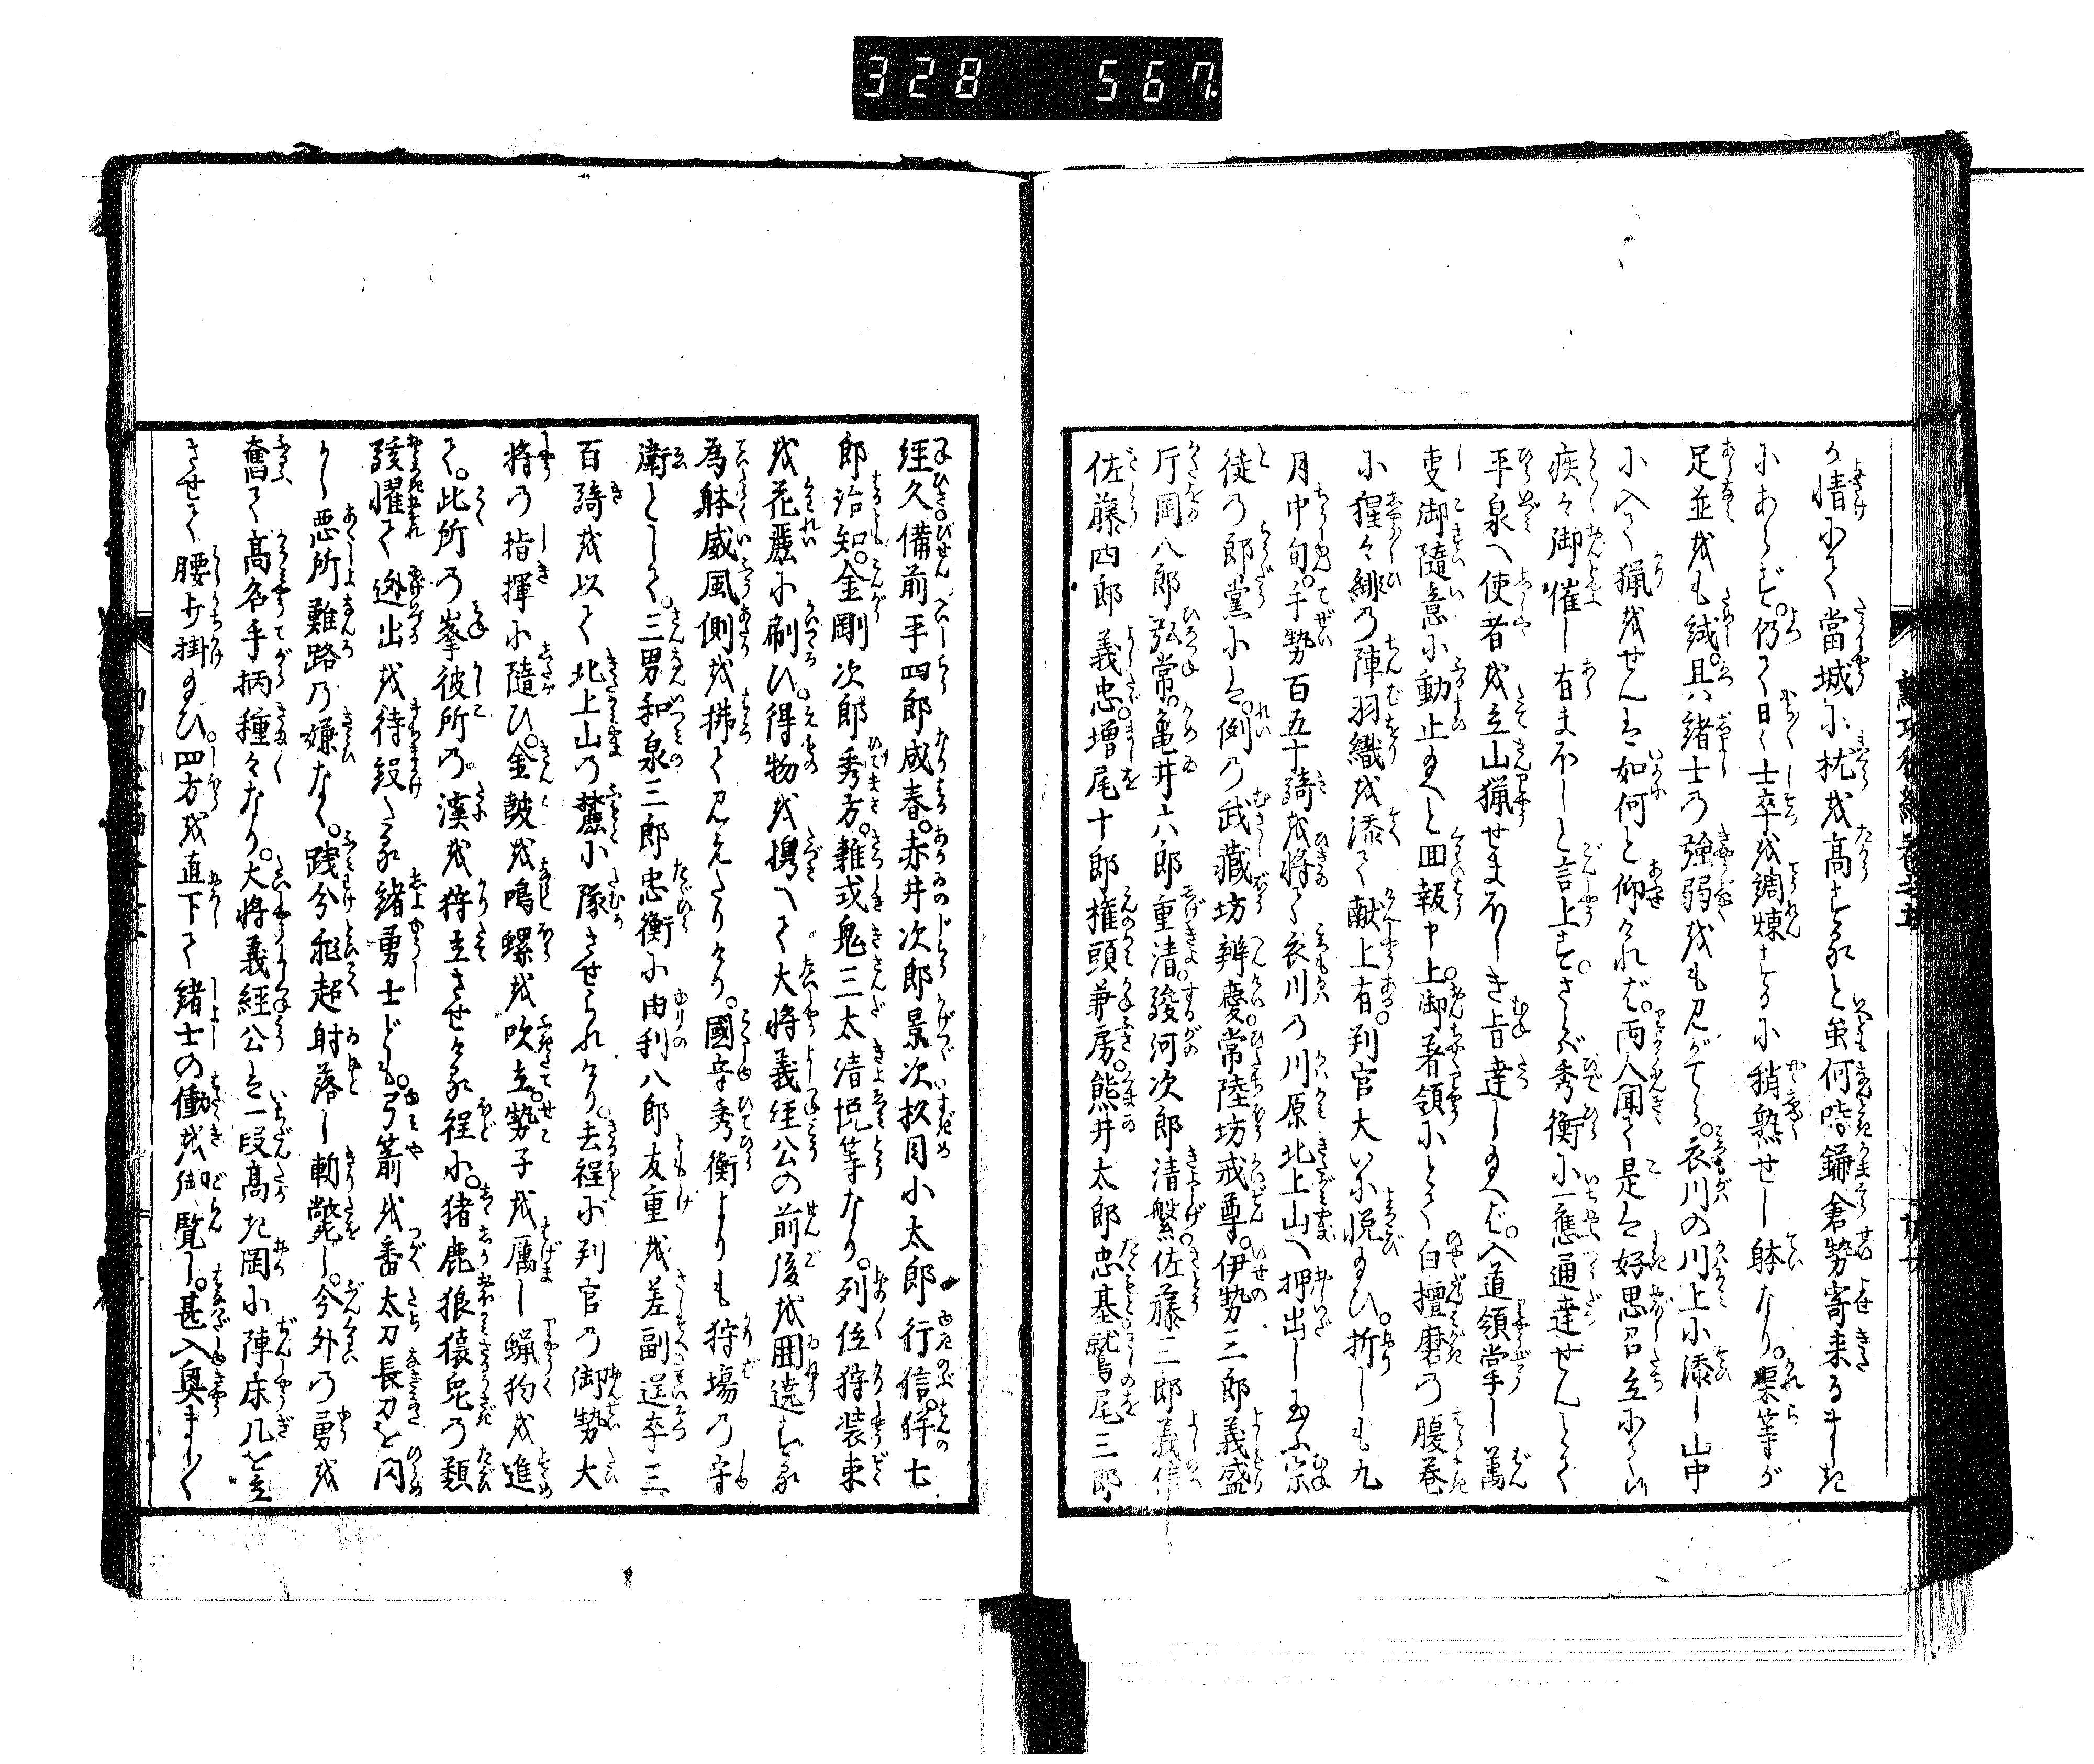 328 567
が情にて當城に枕を高するといへども何時鎌倉勢寄来るまじき
にあらず。仍て日々士卒を調煉するに稍熟せし躰なり。渠等が
足並をも試、且諸士の強弱をも見がてら。衣川の川上に添し山中
に入て猟をせんは如何と仰ければ。両人聞て是は好思召立に候
疾々御催し有まほしと言上す。さらば秀衡に一應通達せんとて
平泉へ使者を立山猟せまほしき旨達し玉へば。入道領掌し萬
事御隨意に動止玉へと回報申上。御着領にとて白檀磨の腹巻
に猩々緋の陣羽織を添て献上有。判官大いに悦玉ひ。折しも九
月中旬。手勢百五十騎を将て衣川の川原北上山へ押出し玉ふ。宗
徒の郎黨には。例の武藏坊辨慶。常陸坊戒尊。伊勢三郎義盛
片岡八郎弘常。亀井六郎重清。駿河次郎清繁。佐藤三郎義信
佐藤四郎義忠。増尾十郎権頭兼房。熊井太郎忠基。鷲尾三郎
経久。備前平四郎成春。赤井次郎景次。杉目小太郎行信。餅七
郎治知。金剛次郎秀方。雑式鬼三太清悦等なり。列位狩装束
を花麗に刷ひ。得物を携へて大将義経公の前後を囲遶する
為躰威風側を拂て見えたりけり。國守秀衡よりも狩場の守
衛として。三男和泉三郎忠衡に由利八郎友重を差副逞卒三
百騎を以て北上山の麓に隊させられけり。去程に判官の御勢大
将の指揮に隨ひ。金皷を鳴螺を吹立。勢子を厲し蝋狗を進
て。此所の峯彼所の渓を狩立させける程に。猪鹿狼猿兎の類
駭懼て迯出を待設たる諸勇士ども。弓箭を番太刀長刀を閃
かし悪所難路の嫌なく。践分飛超射落し斬斃し。分外の勇を
奮て高名手柄種々なり。大将義経公は一段高き岡に陣床几を立
させて腰打掛玉ひ四方を直下て諸士の働を御覧し。甚入興まし〳〵